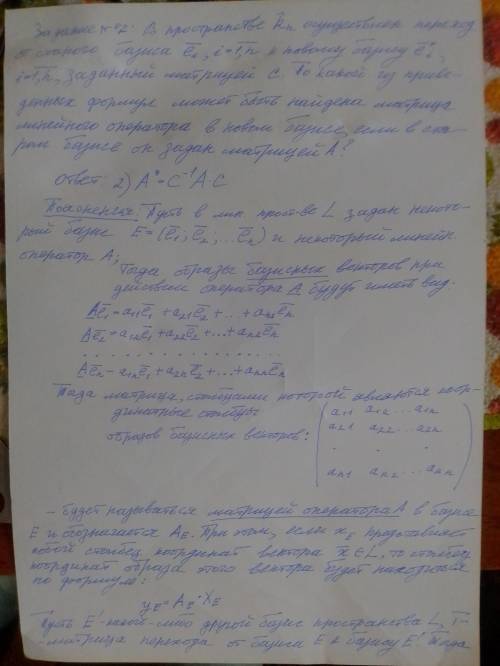 Задание №2: В пространстве Rn осуществлен переход
от старого базиса ei, i=1,n к новому базису ei*,
i=1,n, заданный матрицей С. По какой из приве-
денных формул может быть найдена матрица
линейного оператора в новом базисе, если в ста-
ром базисе он задан матрицей A?
Ответ: 2) A* = C⁻¹A·C
Пояснения: Пусть в лин. простр-ве L задан некото-
рый базис E=(e̅1; e̅2; ... e̅n) и некоторый линейн.
оператор A;
Тогда образы базисных векторов при
действии оператора A будут иметь вид:
Ae̅1 = a11e̅1 + a21e̅2 + ... + an1e̅n
Ae̅2 = a12e̅1 + a22e̅2 + ... + an2e̅n
. . . . . . . . . . . . . . . . . .
Ae̅n = a1ne̅1 + a2ne̅2 + ... + anne̅n
Тогда матрица, столбцами которой являются коор-
динатные столбцы
образов базисных векторов:
a11 a12 ... a1n
a21 a22 ... a2n
. . .
an1 an2 ... ann
- будет называться матрицей оператора A в базисе
E и обозначается AE. При этом, если xE представляет
собой столбец координат вектора x̅ ∈ L, то столбец
координат образа этого вектора будет находиться
по формуле:
yE = AE · XE
Пусть E' - какой-либо другой базис пространства L, T-
-матрица перехода от базиса E к базису E'. Тогда